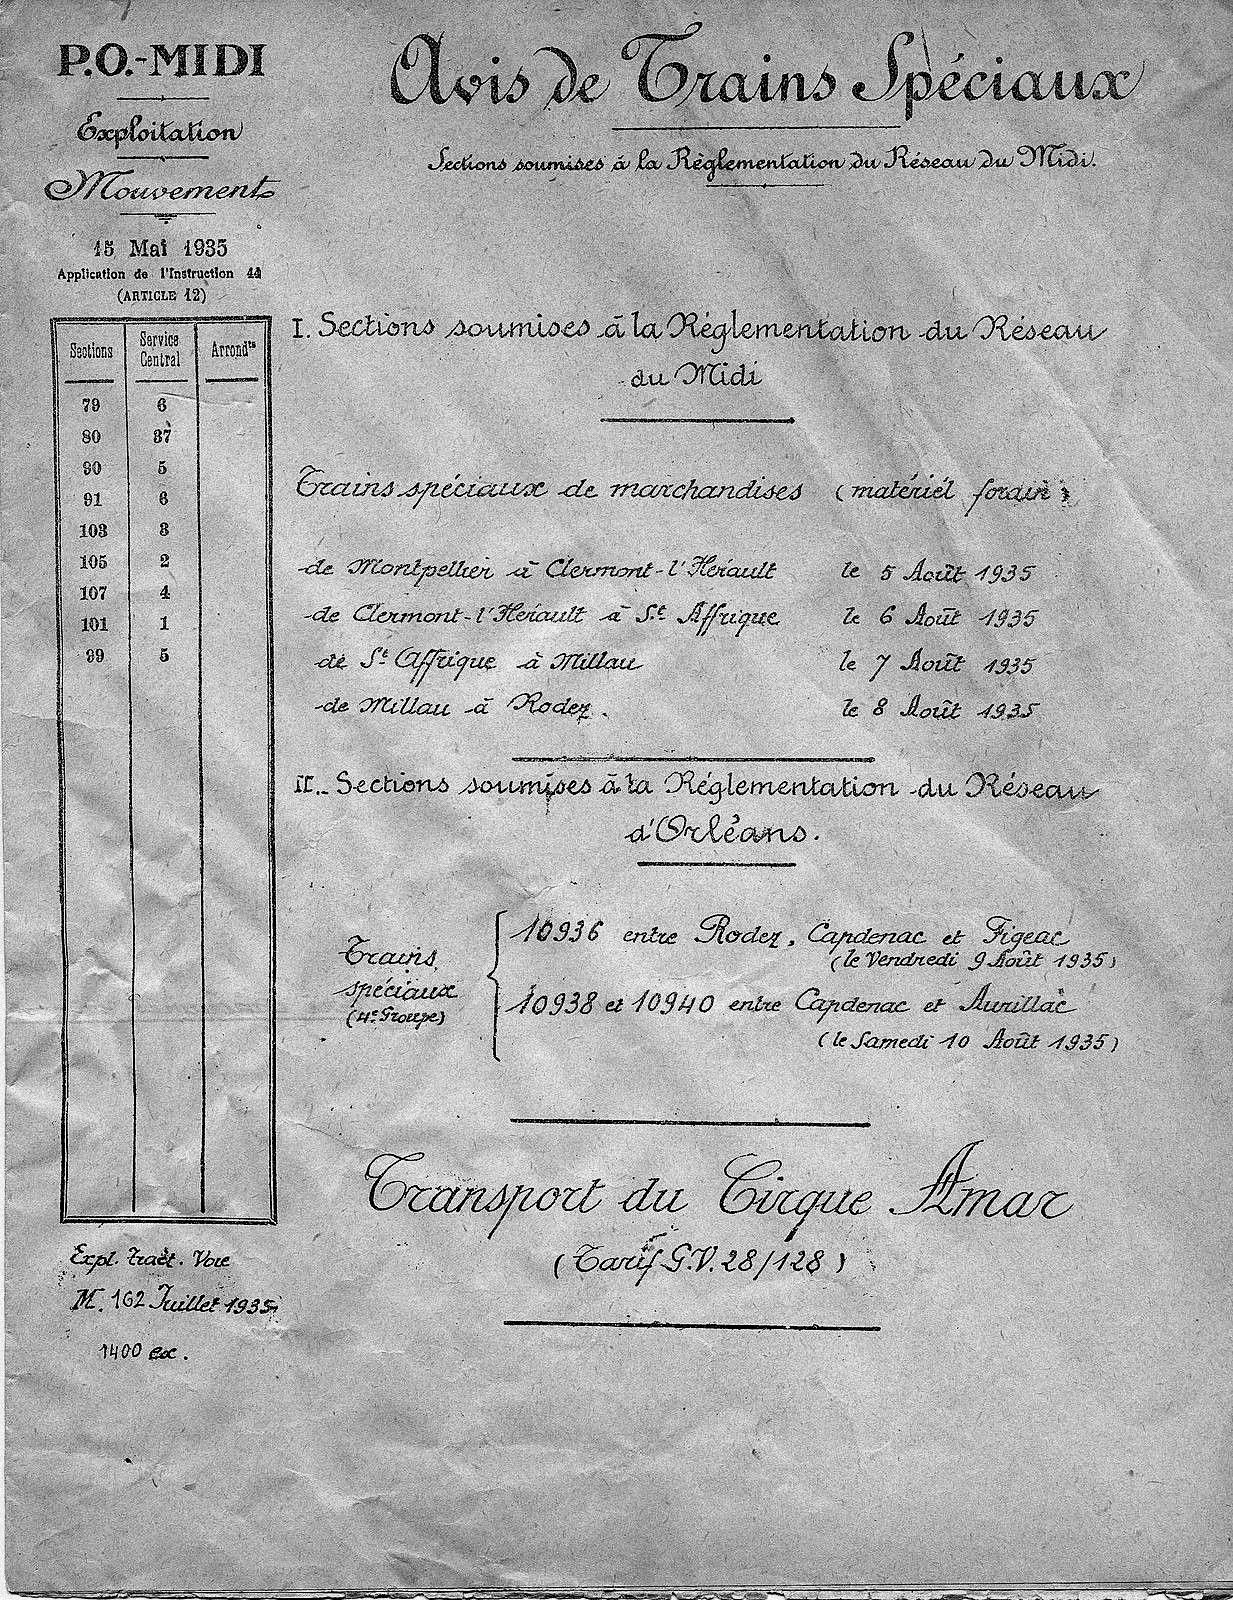 P.O.-MIDI
Exploitation
Mouvement
15 Mai 1935
Application de l'Instruction 44
(ARTICLE 12)
Sections Service Central Arrondts
79 6
80 37
90 5
91 6
103 3
105 2
107 4
101 1
99 5
Expl. Tract. Voie
M. 162 Juillet 1935
1400 ex.
Avis de Trains Spéciaux
Sections soumises à la Règlementation du Réseau du Midi.
I. Sections soumises à la Réglementation du Réseau
du Midi
Trains spéciaux de marchandises (matériel forain)
de Montpellier à Clermont-l'Hérault le 5 Août 1935
de Clermont-l'Hérault à St Affrique le 6 Août 1935
de St Affrique à Millau le 7 Août 1935
de Millau à Rodez. le 8 Août 1935
II._ Sections soumises à la Réglementation du Réseau
d'Orléans.
Trains
spéciaux
(4e Groupe)
10936 entre Rodez, Capdenac et Figeac
(le Vendredi 9 Août 1935)
10938 et 10940 entre Capdenac et Aurillac
(le Samedi 10 Août 1935)
Transport du Cirque Amar
(Tarif G.V. 28/128)